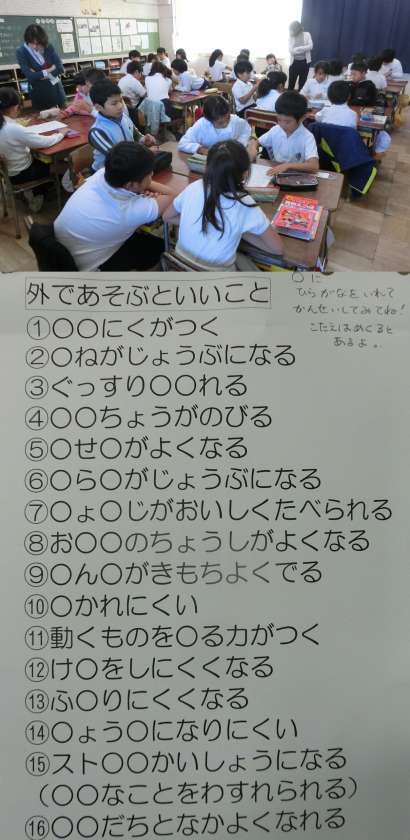 外であそぶといいこと
○に
ひらがなをいれて
かんせいしてみてね!
こたえはめくると
あるよ。
①○○にくがつく
②○ねがじょうぶになる
③ぐっすり○○れる
④○○ちょうがのびる
⑤○せ○がよくなる
⑥○ら○がじょうぶになる
⑦○ょ○じがおいしくたべられる
⑧お○○のちょうしがよくなる
⑨○ん○がきもちよくでる
⑩○かれにくい
⑪動くものを○る力がつく
⑫け○をしにくくなる
⑬ふ○りにくくなる
⑭○ょう○になりにくい
⑮スト○○かいしょうになる
(○○なことをわすれられる)
⑯○○だちとなかよくなれる